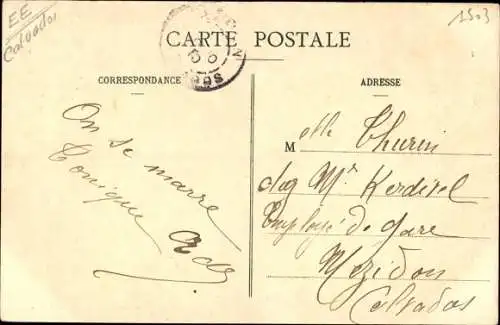 EE
Calvados
1503
CARTE POSTALE
CORRESPONDANCE
ADRESSE
On se marre
Tonique
Melle Thurin
chez Mr Kerdisel
Employé de gare
Mezidon
Calvados